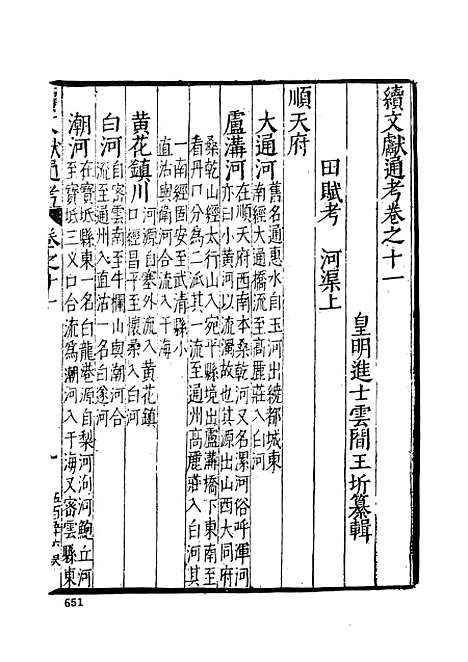 續文獻通考卷之十一
皇明進士雲間王圻纂輯
田賦考 河渠上
順天府
大通河
舊名通惠水自玉河出繞都城東
南經大通橋流至高麗莊入白河
盧溝河
在順天府西南本桑乾河又名漯河俗呼渾河
亦曰小黃河以流濁故也其源出山西大同府
桑乾山經太行山宛平縣境出盧溝橋下東南至
看丹口分為二派其一流至通州高麗莊入白河其
一南經固安至武清縣小
直沽與衛河合流入于海
黃花鎮川
河源自塞外流入黃花鎮
口經昌平至懷柔入白河
白河
自密雲南至牛欄山與潮河合
流至通州入直沽一名白遂河
潮河
在寶坻縣東一名白龍港源自梨河泃河鮑丘河
至寶坻三义口合流爲潮河入于海又密雲縣東
文獻通考
卷之十一
651